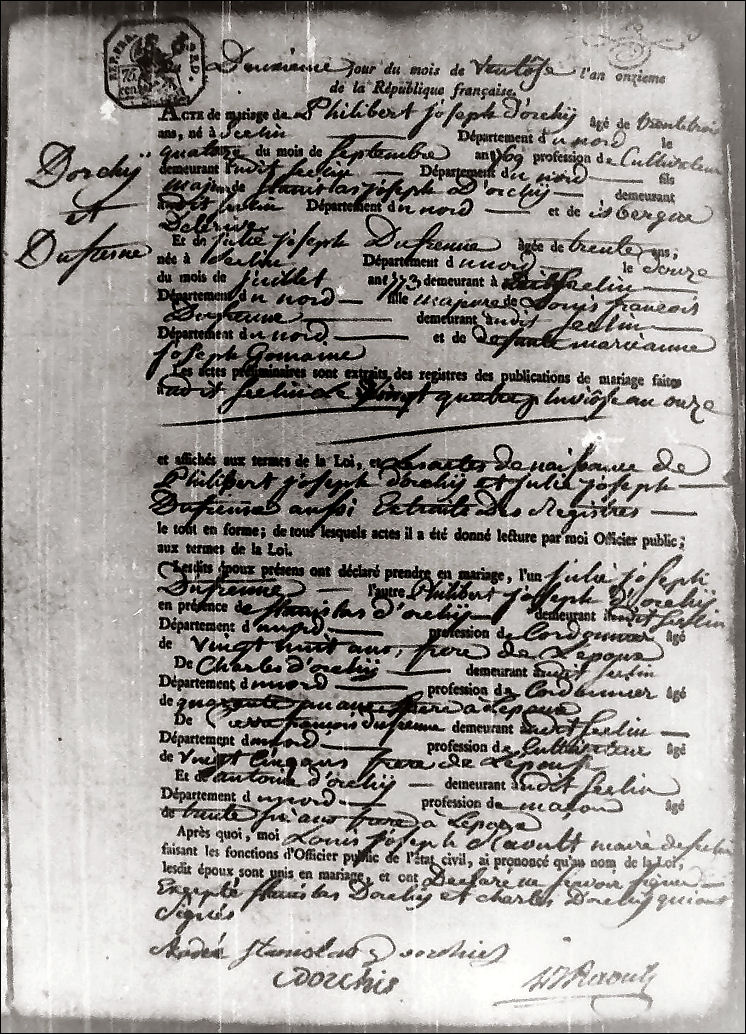 REP. FRA.
75
cent
Deuxieme jour du mois de Ventôse l'an onzieme
de la République française.
ACTE de mariage de Philibert joseph d'orchij âgé de trentetrois
ans, né à Seclin Département du nord le
quatorze du mois de Septembre an 1769 profession de Cultivateur
demeurant audit Seclin Département du nord fils
majeur de Stanislas joseph D'orchij demeurant
audit Seclin Département du nord et de isbergue
Dorchij
et
Dufrenne
Et de julie joseph Dufrenne âgée de trente ans,
née à Seclin Département du nord le Douze
du mois de juillet an 1773 demeurant à Seclin
Département du nord fille majeure de Louis francois
Dufrenne demeurant audit Seclin
Département du nord et de defunte marieanne
joseph Gomaine
Les actes préliminaires sont extraits des registres des publications de mariage faites
audit Seclin le Vingt quatre pluviôse an onze
et affichés aux termes de la Loi, et Les actes de naissance de
Philibert joseph d'orchij et julie joseph
Dufrenne aussi Extraits Des Registres
le tout en forme; de tous lesquels actes il a été donné lecture par moi Officier public;
aux termes de la Loi.
Lesdits époux présens ont déclaré prendre en mariage, l'un julie joseph
Dufrenne l'autre Philibert joseph d'orchij
en présence de Stanislas d'orchij demeurant audit Seclin
Département du nord profession de Cordonnier âgé
de vingt huit ans, frere de Lepoux
De Charles d'orchij demeurant audit Seclin
Département du nord profession de Cordonnier âgé
de quarante un ans frere à Lepoux
De Pierre francois dufrenne demeurant audit Seclin
Département du nord profession de Cultivateur âgé
de vingt Cinq ans frere de Lepouse
Et d'antoine d'orchij demeurant audit Seclin
Département du nord profession de maçon âgé
de trente ans frere à Lepoux
Après quoi, moi Louis joseph maire de Seclin
faisant les fonctions d'Officier public de l'état civil, ai prononcé qu'au nom de la Loi,
lesdit époux sont unis en mariage, et ont Declaré ne Scavoir Signer
Excepté Stanislas Dorchij et charles Dorchij qui ont
Signés
Stanislas Dorchies
dorchis